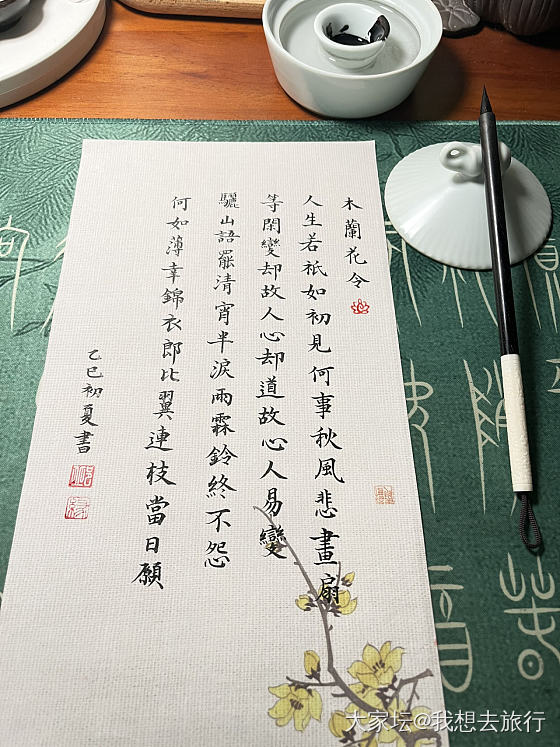 木蘭花令
人生若祇如初見何事秋風悲畫扇
等閑變却故人心却道故心人易變
驪山語罷清宵半淚雨霖鈴終不怨
何如薄幸錦衣郎比翼連枝當日願
乙巳初夏書
大家坛@我想去旅行